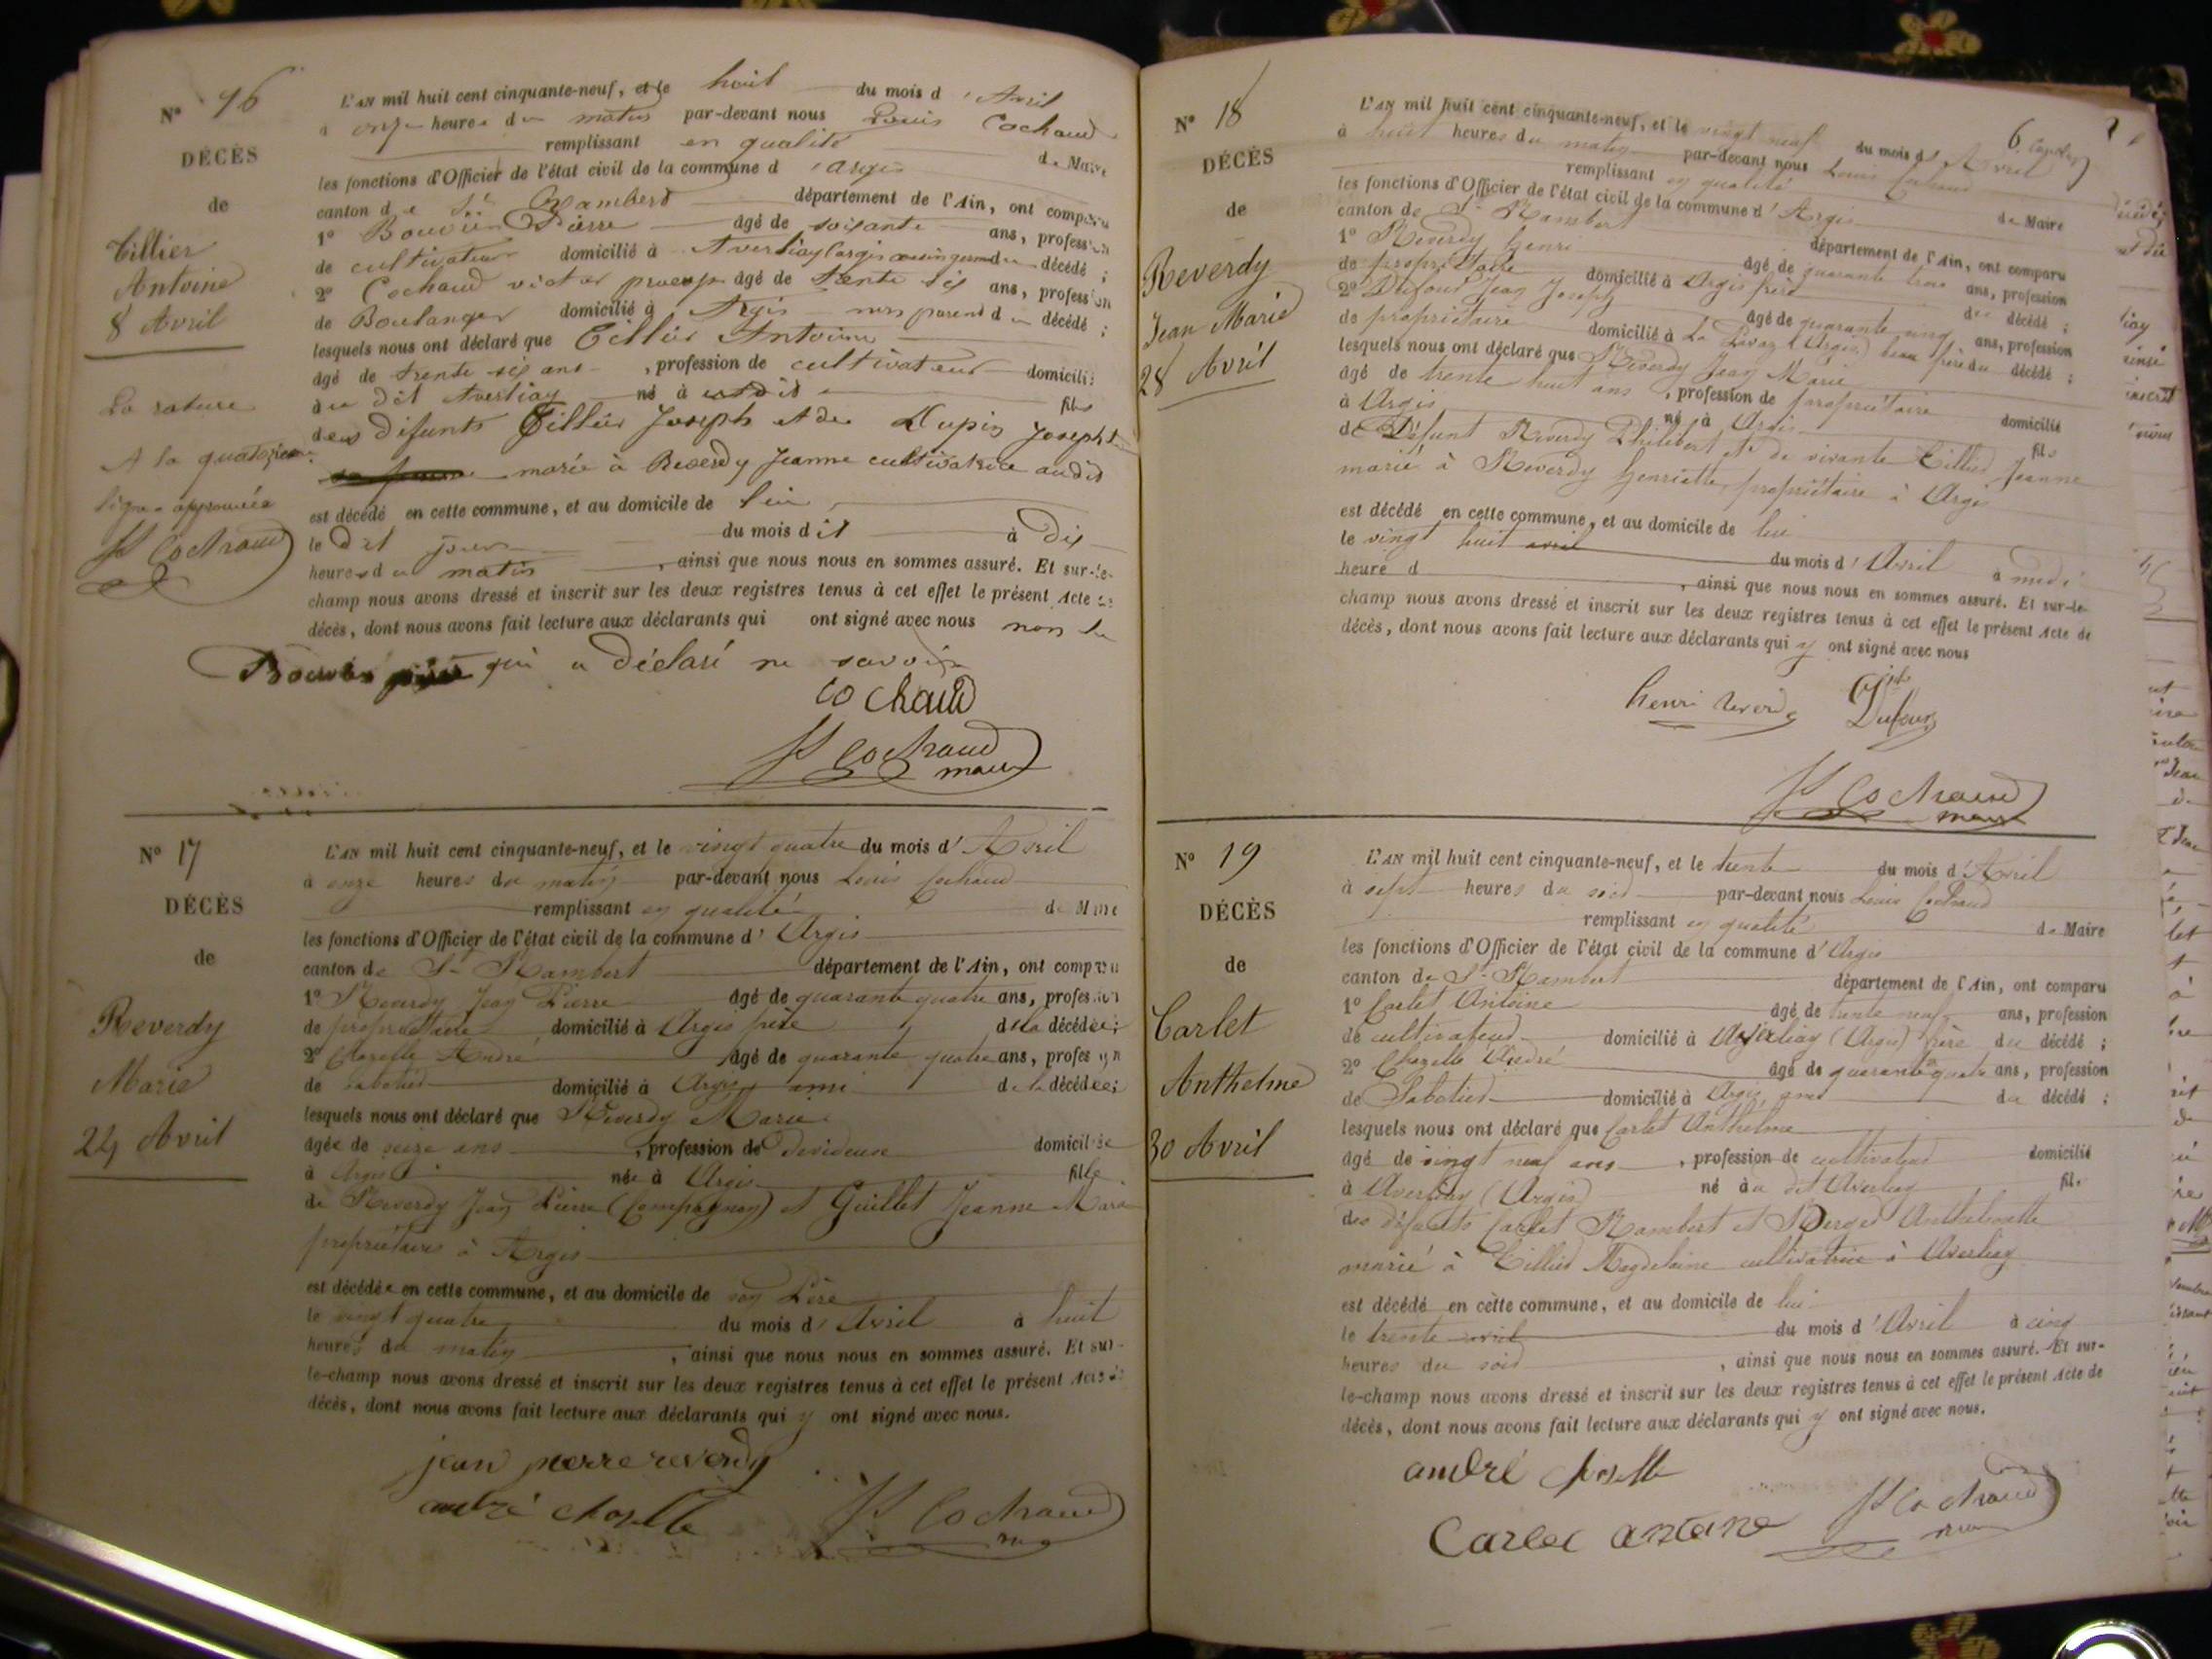 N° 16
DÉCÈS
de
Tillier
Antoine
8 Avril
La rature
A la quatorzième
ligne approuvée
L Cochaud
L'AN mil huit cent cinquante-neuf, et le huit du mois d'Avril
à onze heures du matin par-devant nous Louis Cochaud
remplissant en qualité de Maire
les fonctions d'Officier de l'état civil de la commune d'Argis
canton de St Rambert département de l'Ain, ont comparu
1° Bouvier Pierre âgé de soixante ans, profession
de cultivateur domicilié à Averliaz (argis) cousin germain du décédé ;
2° Cochaud victor âgé de trente six ans, profession
de Boulanger domicilié à Argis non parent du décédé ;
lesquels nous ont déclaré que Tillier Antoine
âgé de trente six ans, profession de cultivateur domicilié
au dit Averliaz né à
fils
des défunts Tillier Joseph et de Dupin Josephte
marié à Reverdy Jeanne cultivatrice audit
est décédé en cette commune, et au domicile de lui
le dit jour du mois dit à Dix
heures du matin, ainsi que nous nous en sommes assuré. Et sur-le-
champ nous avons dressé et inscrit sur les deux registres tenus à cet effet le présent Acte de
décès, dont nous avons fait lecture aux déclarants qui ont signé avec nous non le
Bouvier qui a déclaré ne savoir
Cochaud
L Cochaud
maire
N° 17
DÉCÈS
de
Reverdy
Marie
24 Avril
L'AN mil huit cent cinquante-neuf, et le vingt quatre du mois d'Avril
à onze heures du matin par-devant nous Louis Cochaud
remplissant en qualité de Maire
les fonctions d'Officier de l'état civil de la commune d'Argis
canton de St Rambert département de l'Ain, ont comparu
1° Reverdy Jean Pierre âgé de quarante quatre ans, profession
de propriétaire domicilié à Argis père de la décédée ;
2° Chozelle André âgé de quarante quatre ans, profession
de sabotier domicilié à Argis, ami de la décédée ;
lesquels nous ont déclaré que Reverdy Marie
âgée de seize ans, profession de devideuse domiciliée
à Argis née à Argis fille
de Reverdy Jean Pierre (Compagnon) et Guillet Jeanne Marie
propriétaires à Argis
est décédée en cette commune, et au domicile de son Père
le vingt quatre du mois d'Avril à huit
heures du matin, ainsi que nous nous en sommes assuré. Et sur-
le-champ nous avons dressé et inscrit sur les deux registres tenus à cet effet le présent Acte de
décès, dont nous avons fait lecture aux déclarants qui y ont signé avec nous.
jean pierre reverdy
andré chozelle
L Cochaud
N° 18
DÉCÈS
de
Reverdy
Jean Marie
28 Avril
L'AN mil huit cent cinquante-neuf, et le vingt neuf du mois d'Avril
à huit heures du matin par-devant nous Louis Cochaud
remplissant en qualité de Maire
les fonctions d'Officier de l'état civil de la commune d'Argis
canton de St Rambert département de l'Ain, ont comparu
1° Reverdy henri âgé de quarante trois ans, profession
de propriétaire domicilié à Argis frère du décédé ;
2° Dufour Jean Joseph âgé de quarante cinq ans, profession
de propriétaire domicilié à (Argis) beau frère du décédé ;
lesquels nous ont déclaré que Reverdy Jean Marie
âgé de trente huit ans, profession de propriétaire domicilié
à Argis né à Argis fils
de Défunt Reverdy Philibert et de vivante Tillier Jeanne
marié à Reverdy henriette, propriétaire à Argis
est décédé en cette commune, et au domicile de lui
le vingt huit avril du mois d'Avril à midi
heure d , ainsi que nous nous en sommes assuré. Et sur-le-
champ nous avons dressé et inscrit sur les deux registres tenus à cet effet le présent Acte de
décès, dont nous avons fait lecture aux déclarants qui y ont signé avec nous
henri reverdy
Dufour
L Cochaud
maire
N° 19
DÉCÈS
de
Carlet
Anthelme
30 Avril
L'AN mil huit cent cinquante-neuf, et le trente du mois d'Avril
à sept heures du soir par-devant nous Louis Cochaud
remplissant en qualité de Maire
les fonctions d'Officier de l'état civil de la commune d'Argis
canton de St Rambert département de l'Ain, ont comparu
1° Carlet Antoine âgé de trente neuf ans, profession
de cultivateur domicilié à Averliaz (Argis) frère du décédé ;
2° Chozelle André âgé de quarante quatre ans, profession
de Sabotier domicilié à Argis, ami du décédé ;
lesquels nous ont déclaré que Carlet Anthelme
âgé de vingt neuf ans, profession de cultivateur domicilié
à Averliaz (Argis) né au dit Averliaz fils
des défunts Carlet Rambert et Anthelmette
marié à Tillier Magdelaine cultivatrice à Averliaz
est décédé en cette commune, et au domicile de lui
le trente avril du mois d'Avril à cinq
heures du soir, ainsi que nous nous en sommes assuré. Et sur-
le-champ nous avons dressé et inscrit sur les deux registres tenus à cet effet le présent Acte de
décès, dont nous avons fait lecture aux déclarants qui y ont signé avec nous.
andré chozelle
Carlet antoine
L Cochaud